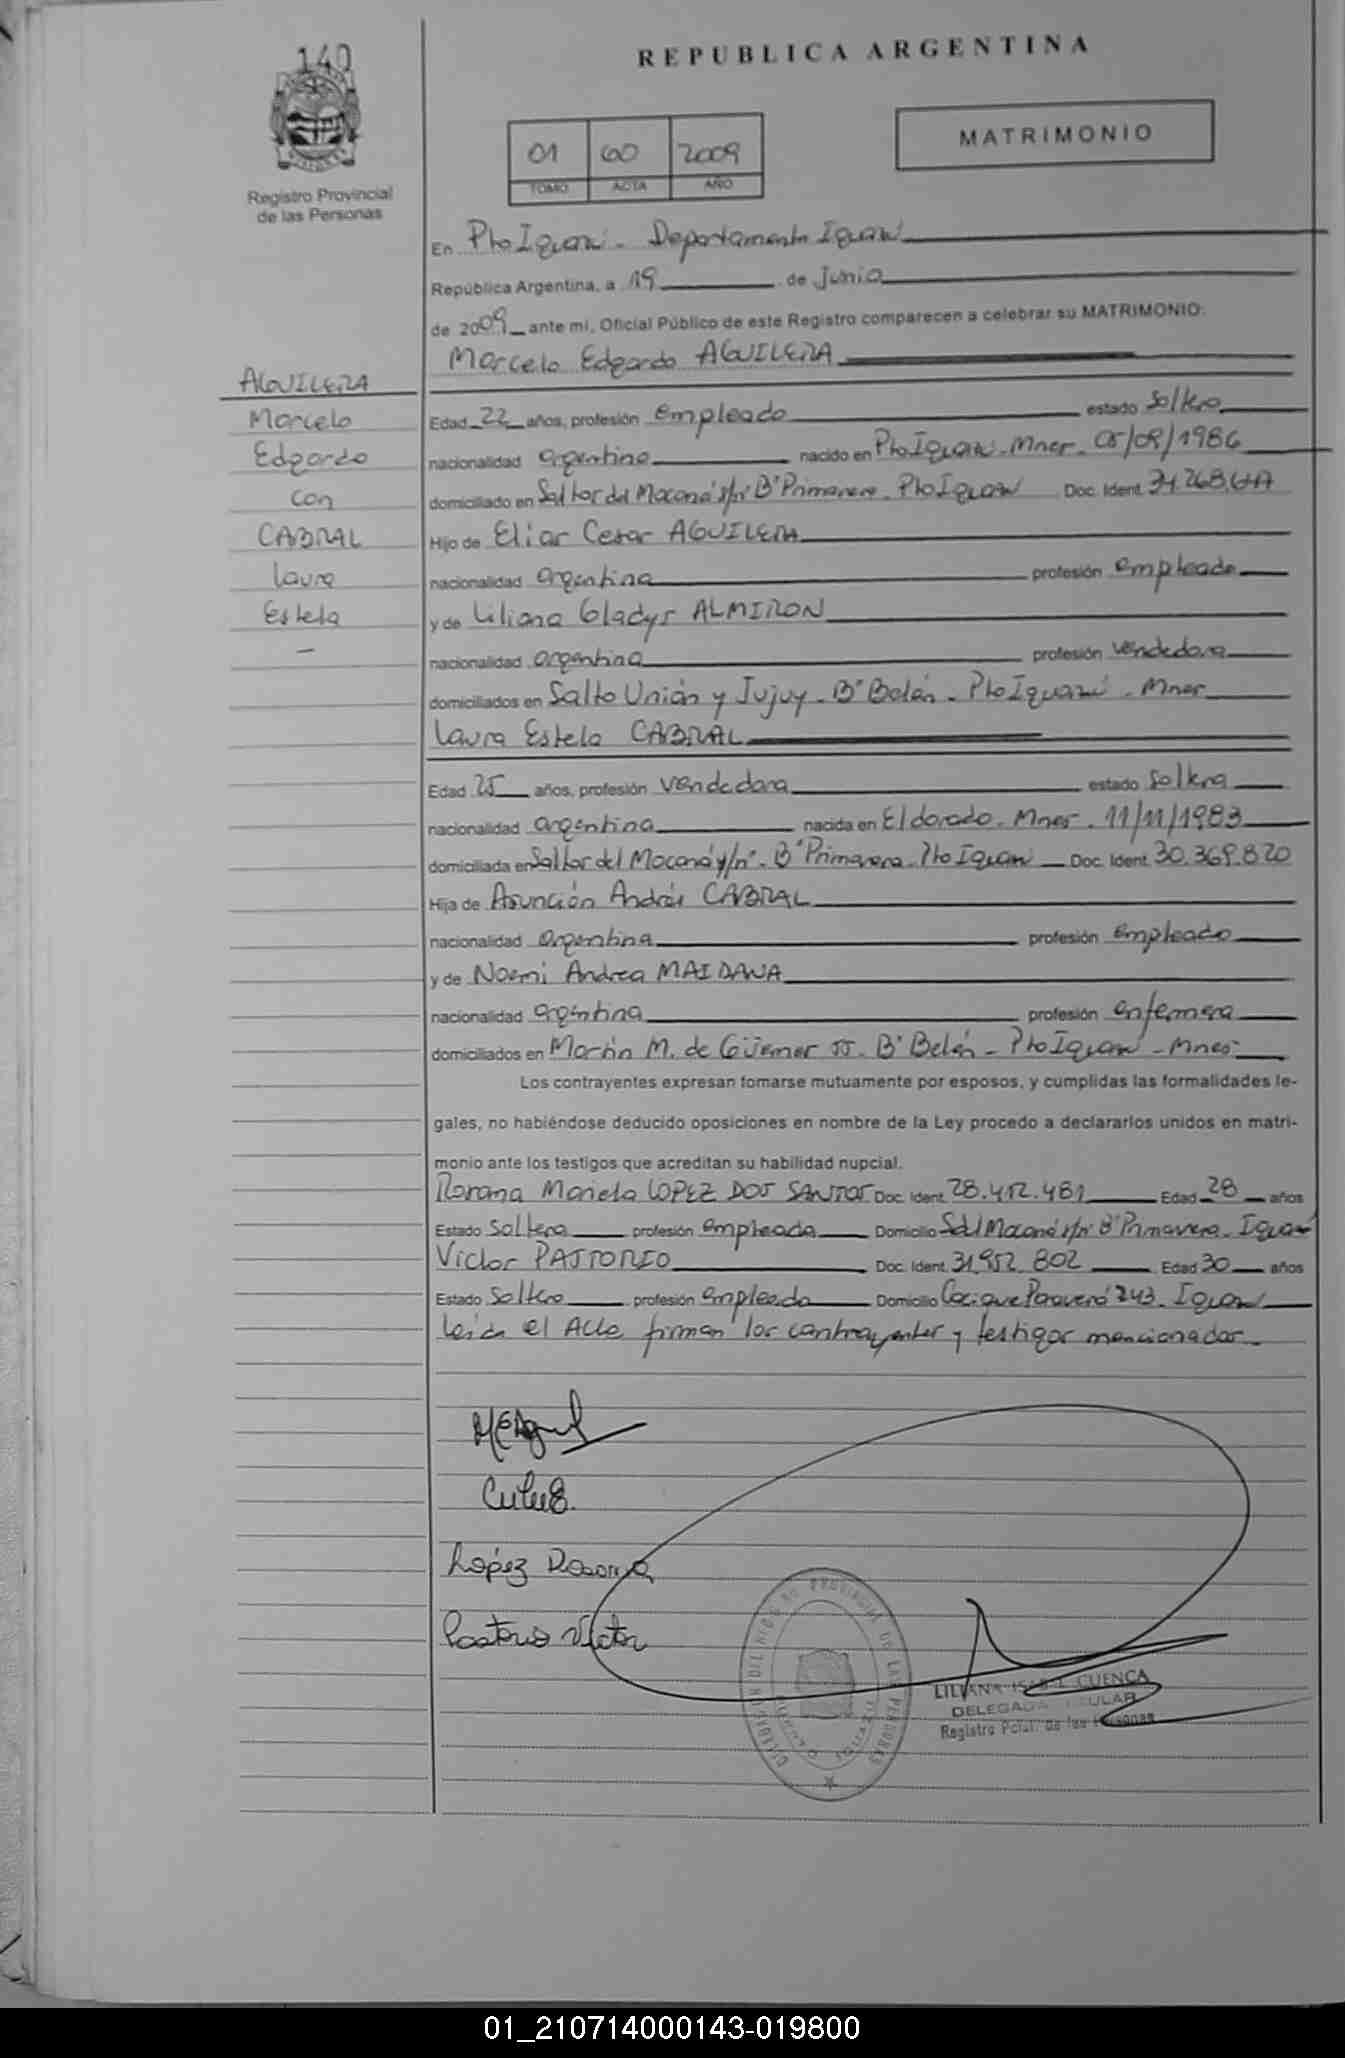 140
REPUBLICA ARGENTINA
MATRIMONIO
01 60 2009
TOMO ACTA AÑO
Registro Provincial
de las Personas
En Pto Iguazú - Departamento Iguazú
República Argentina, a 19 de Junio
de 2009 ante mi, Oficial Público de este Registro comparecen a celebrar su MATRIMONIO:
Marcelo Edgardo AGUILERA
AGUILERA
Marcelo
Edgardo
con
CABRAL
Laura
Estela
Edad 22 años, profesión empleado estado Soltero
nacionalidad argentina nacido en Pto Iguazú - Mnes - 05/09/1986
domiciliado en Saltos del Moconá s/nº Bº Primavera - Pto Iguazú Doc. Ident. 34.268.
Hijo de Elias Cesar AGUILERA
nacionalidad argentina profesión empleado
y de Liliana Gladys ALMIRON
nacionalidad argentina profesión vendedora
domiciliados en Salto Unión y Jujuy - Bº Belén - Pto Iguazú - Mnes
Laura Estela CABRAL
Edad 25 años, profesión vendedora estado Soltera
nacionalidad argentina nacida en Eldorado - Mnes - 11/11/1983
domiciliada en Saltos del Moconá s/nº - Bº Primavera - Pto Iguazú Doc. Ident. 30.369.820
Hija de Asunción Andrés CABRAL
nacionalidad argentina profesión empleado
y de Noemi Andrea MAIDANA
nacionalidad argentina profesión enfermera
domiciliados en Martín M. de Güemes 55 - Bº Belén - Pto Iguazú - Mnes
Los contrayentes expresan tomarse mutuamente por esposos, y cumplidas las formalidades le-
gales, no habiéndose deducido oposiciones en nombre de la Ley procedo a declararlos unidos en matri-
monio ante los testigos que acreditan su habilidad nupcial.
Rosana Mariela LOPEZ DOS SANTOS Doc. Ident. 28.412.481 Edad 28 años
Estado Soltera profesión empleada Domicilio S del Moconá s/nº Bº Primavera - Iguazú
Victor PASTORIO Doc. Ident. 31.952.802 Edad 30 años
Estado Soltero profesión empleado Domicilio Cacique 243 - Iguazú
Leída el Acta firman los contrayentes y testigos mencionados
López Rosana
Pastorio Victor
PROVINCIAL DE LAS PERSONAS
LILIANA ISABEL CUENCA
DELEGADA TITULAR
Registro Pcial. de las Personas
01_210714000143-019800